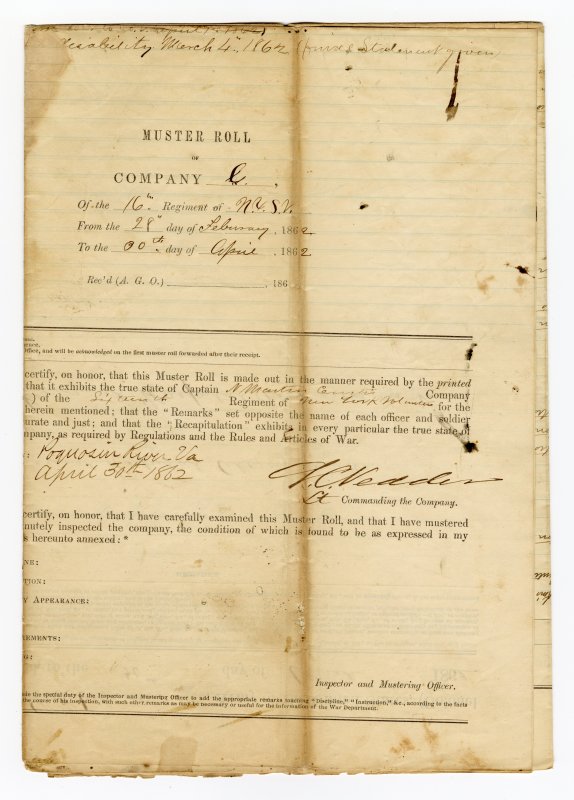 disability March 4th 1862 (final Statement given
MUSTER ROLL
OF
COMPANY C.
Of the 16th Regiment of N.Y.S.V.
From the 28th day of Feburary, 1862
To the 30th day of April, 1862
Rec'd (A. G. O.) , 186
Office, and will be acknowledged on the first muster roll forwarded after their receipt.
certify, on honor, that this Muster Roll is made out in the manner required by the printed
that it exhibits the true state of Captain N Martin Company
) of the Sixteenth Regiment of New York Volunteers for the
herein mentioned; that the "Remarks" set opposite the name of each officer and soldier
urate and just; and that the "Recapitulation" exhibits in every particular the true state of
mpany, as required by Regulations and the Rules and Articles of War.
: Poquosin River Va
April 30th 1862 Vedder
Lt Commanding the Company.
certify, on honor, that I have carefully examined this Muster Roll, and that I have mustered
nutely inspected the company, the condition of which is found to be as expressed in my
s hereunto annexed:*
NE:
TION:
Y APPEARANCE:
REMENTS:
G:
Inspector and Mustering Officer.
ade the special duty of the Inspector and Mustering Officer to add the appropriate remarks touching "Discipline," "Instruction," &c., according to the facts
the course of his inspection, with such other remarks as may be necessary or useful for the information of the War Department.